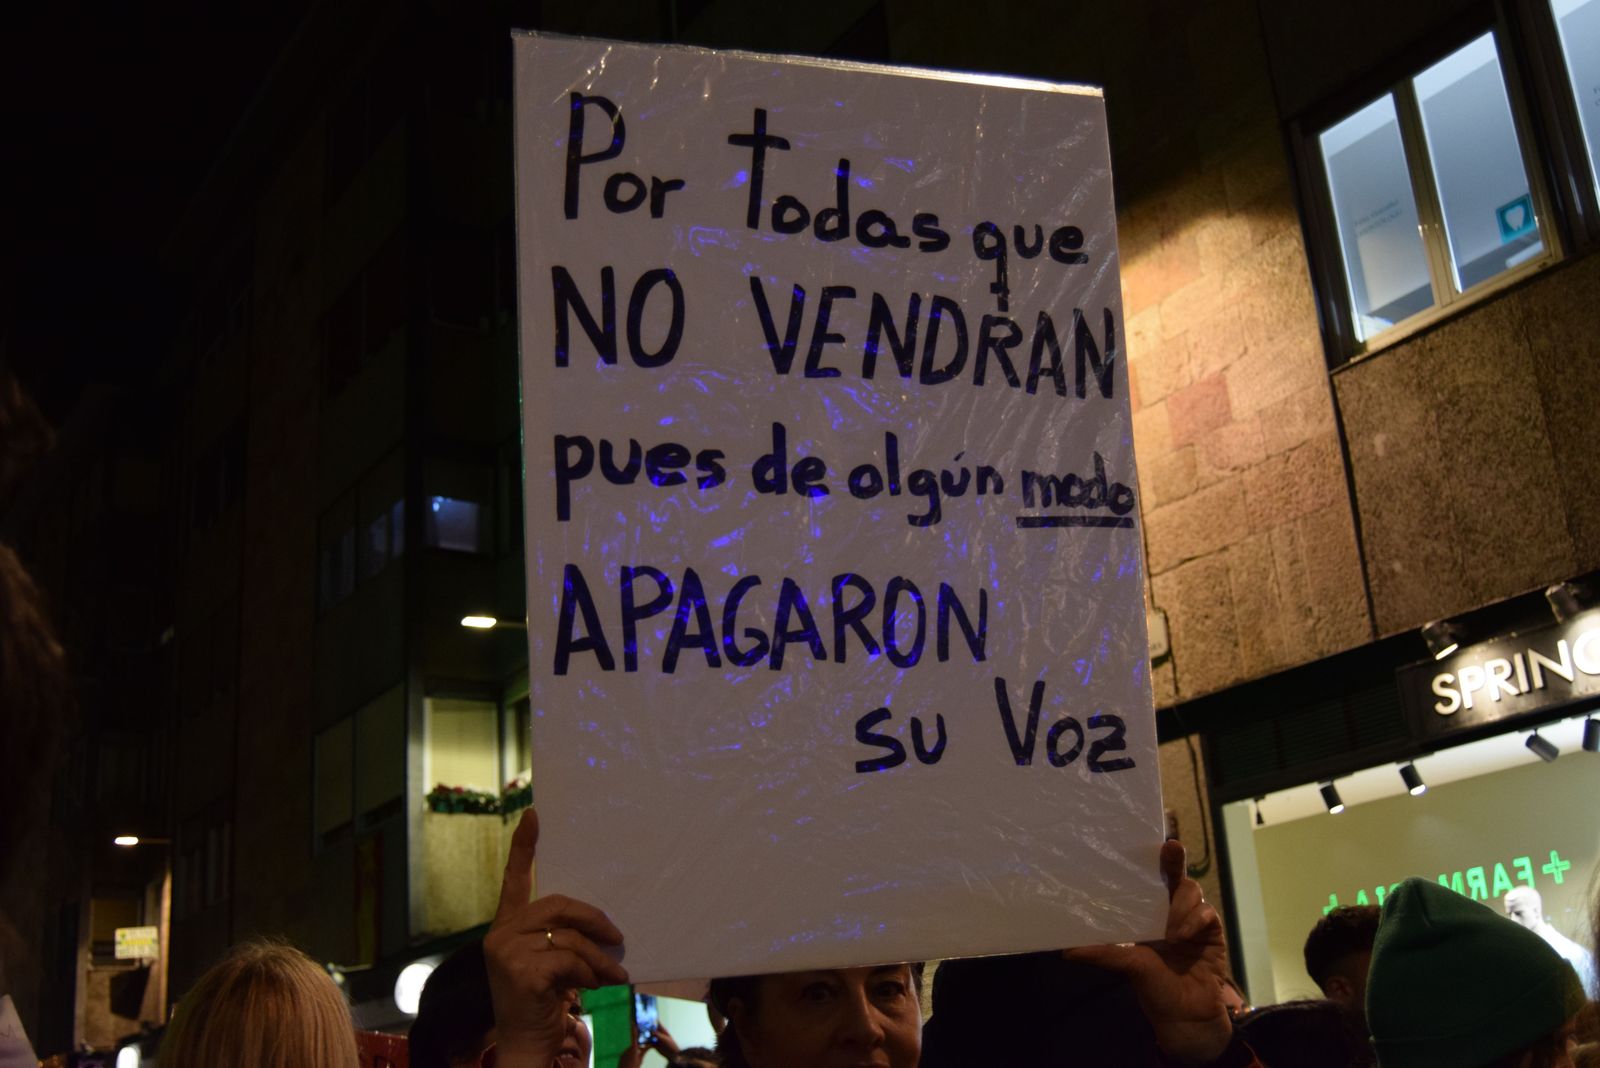 Por todas que
NO VENDRAN
pues de algún modo
APAGARON
su Voz
SPRING
+ FARMACIA +